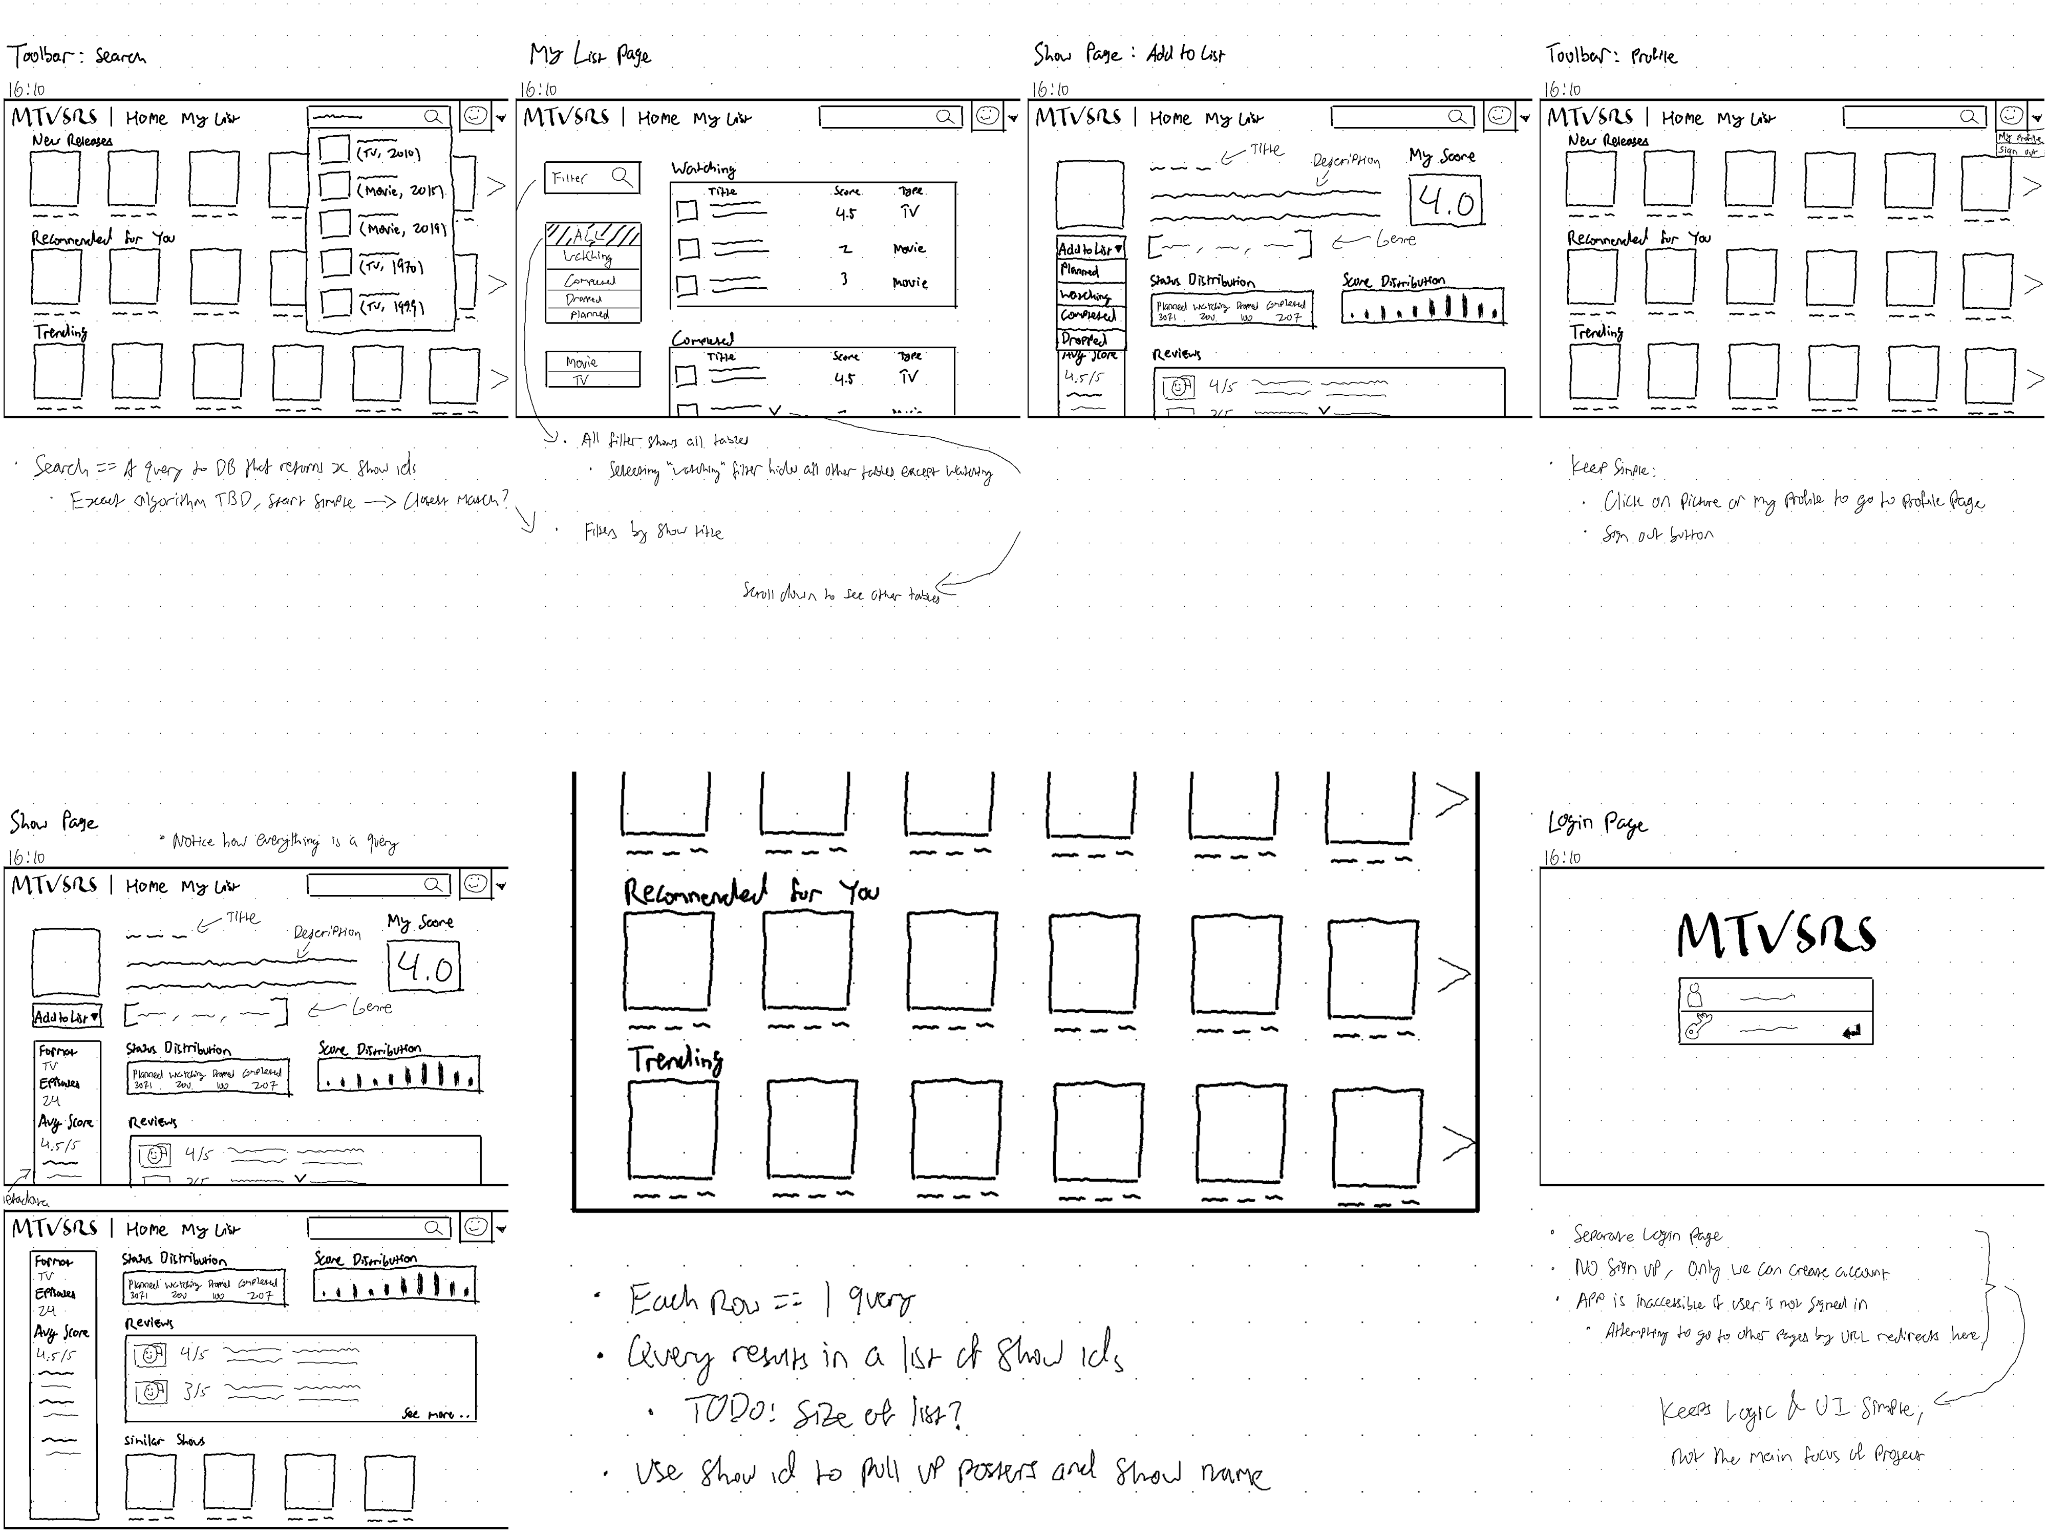 Toolbar: Search
16:10
MTVSRS | Home My List
New Releases
(TV, 2010)
(Movie, 2015)
(Movie, 2019)
(TV, 1970)
(TV, 1999)
Recommended for You
Trending
· Search == A query to DB that returns x show ids
· Exact algorithm TBD, start simple → Closest Match?
My List Page
16:10
MTVSRS | Home My List
Filter
ALL
Watching
Completed
Dropped
Planned
Movie
TV
Watching
Title Score Type
4.5 TV
2 Movie
3 Movie
Completed
Title Score Type
4.5 TV
Movie
· All filter shows all tables
· Selecting "watching" filter hides all other tables except watching
· Filters by show title
Scroll down to see other tables
Show Page: Add to List
16:10
MTVSRS | Home My List
Title
Description
My Score
4.0
Genre
Add to List
Planned
Watching
Completed
Dropped
Avg Score
4.5/5
Status Distribution
Planned Watching Dropped Completed
3071 200 100 207
Score Distribution
Reviews
4/5
3/5
Toolbar: Profile
16:10
MTVSRS | Home My List
My Profile
Sign out
New Releases
Recommended for You
Trending
· Keep Simple:
· Click on Picture or My Profile to go to Profile Page
· Sign out button
Show Page
· Notice how everything is a query
16:10
MTVSRS | Home My List
Title
Description
My Score
4.0
Add to List
Genre
Format
TV
Episodes
24
Avg Score
4.5/5
Status Distribution
Planned Watching Dropped Completed
3071 200 100 207
Score Distribution
Reviews
4/5
3/5
MTVSRS | Home My List
Format
TV
Episodes
24
Avg Score
4.5/5
Status Distribution
Planned Watching Dropped Completed
3071 200 100 207
Score Distribution
Reviews
4/5
3/5
See more..
Similar Shows
Recommended for You
Trending
· Each Row == 1 query
· Query results in a list of show ids
· TODO: Size of list?
· Use show id to pull up posters and show name
Login Page
16:10
MTVSRS
· Separate Login Page
· NO Sign up, Only we can create account
· APP is inaccessible if user is not signed in
· Attempting to go to other pages by URL redirects here
Keeps Logic & UI Simple,
not the main focus of project